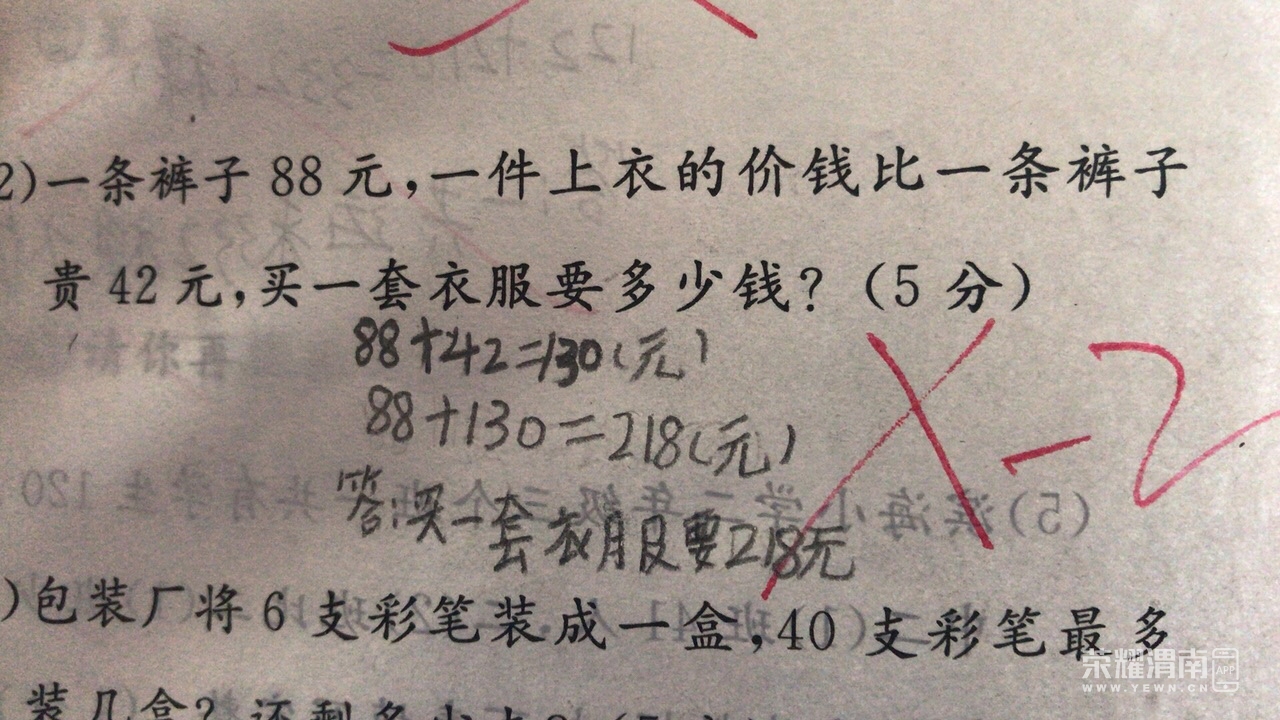 2)一条裤子 88 元,一件上衣的价钱比一条裤子
贵 42 元,买一套衣服要多少钱?(5 分)
88+42=130(元)
88+130=218(元)
答:买一套衣服要218元
-2
)包装厂将 6 支彩笔装成一盒,40 支彩笔最多
装几盒?还剩多少
荣耀渭南 APP
WWW.YEWN.CN